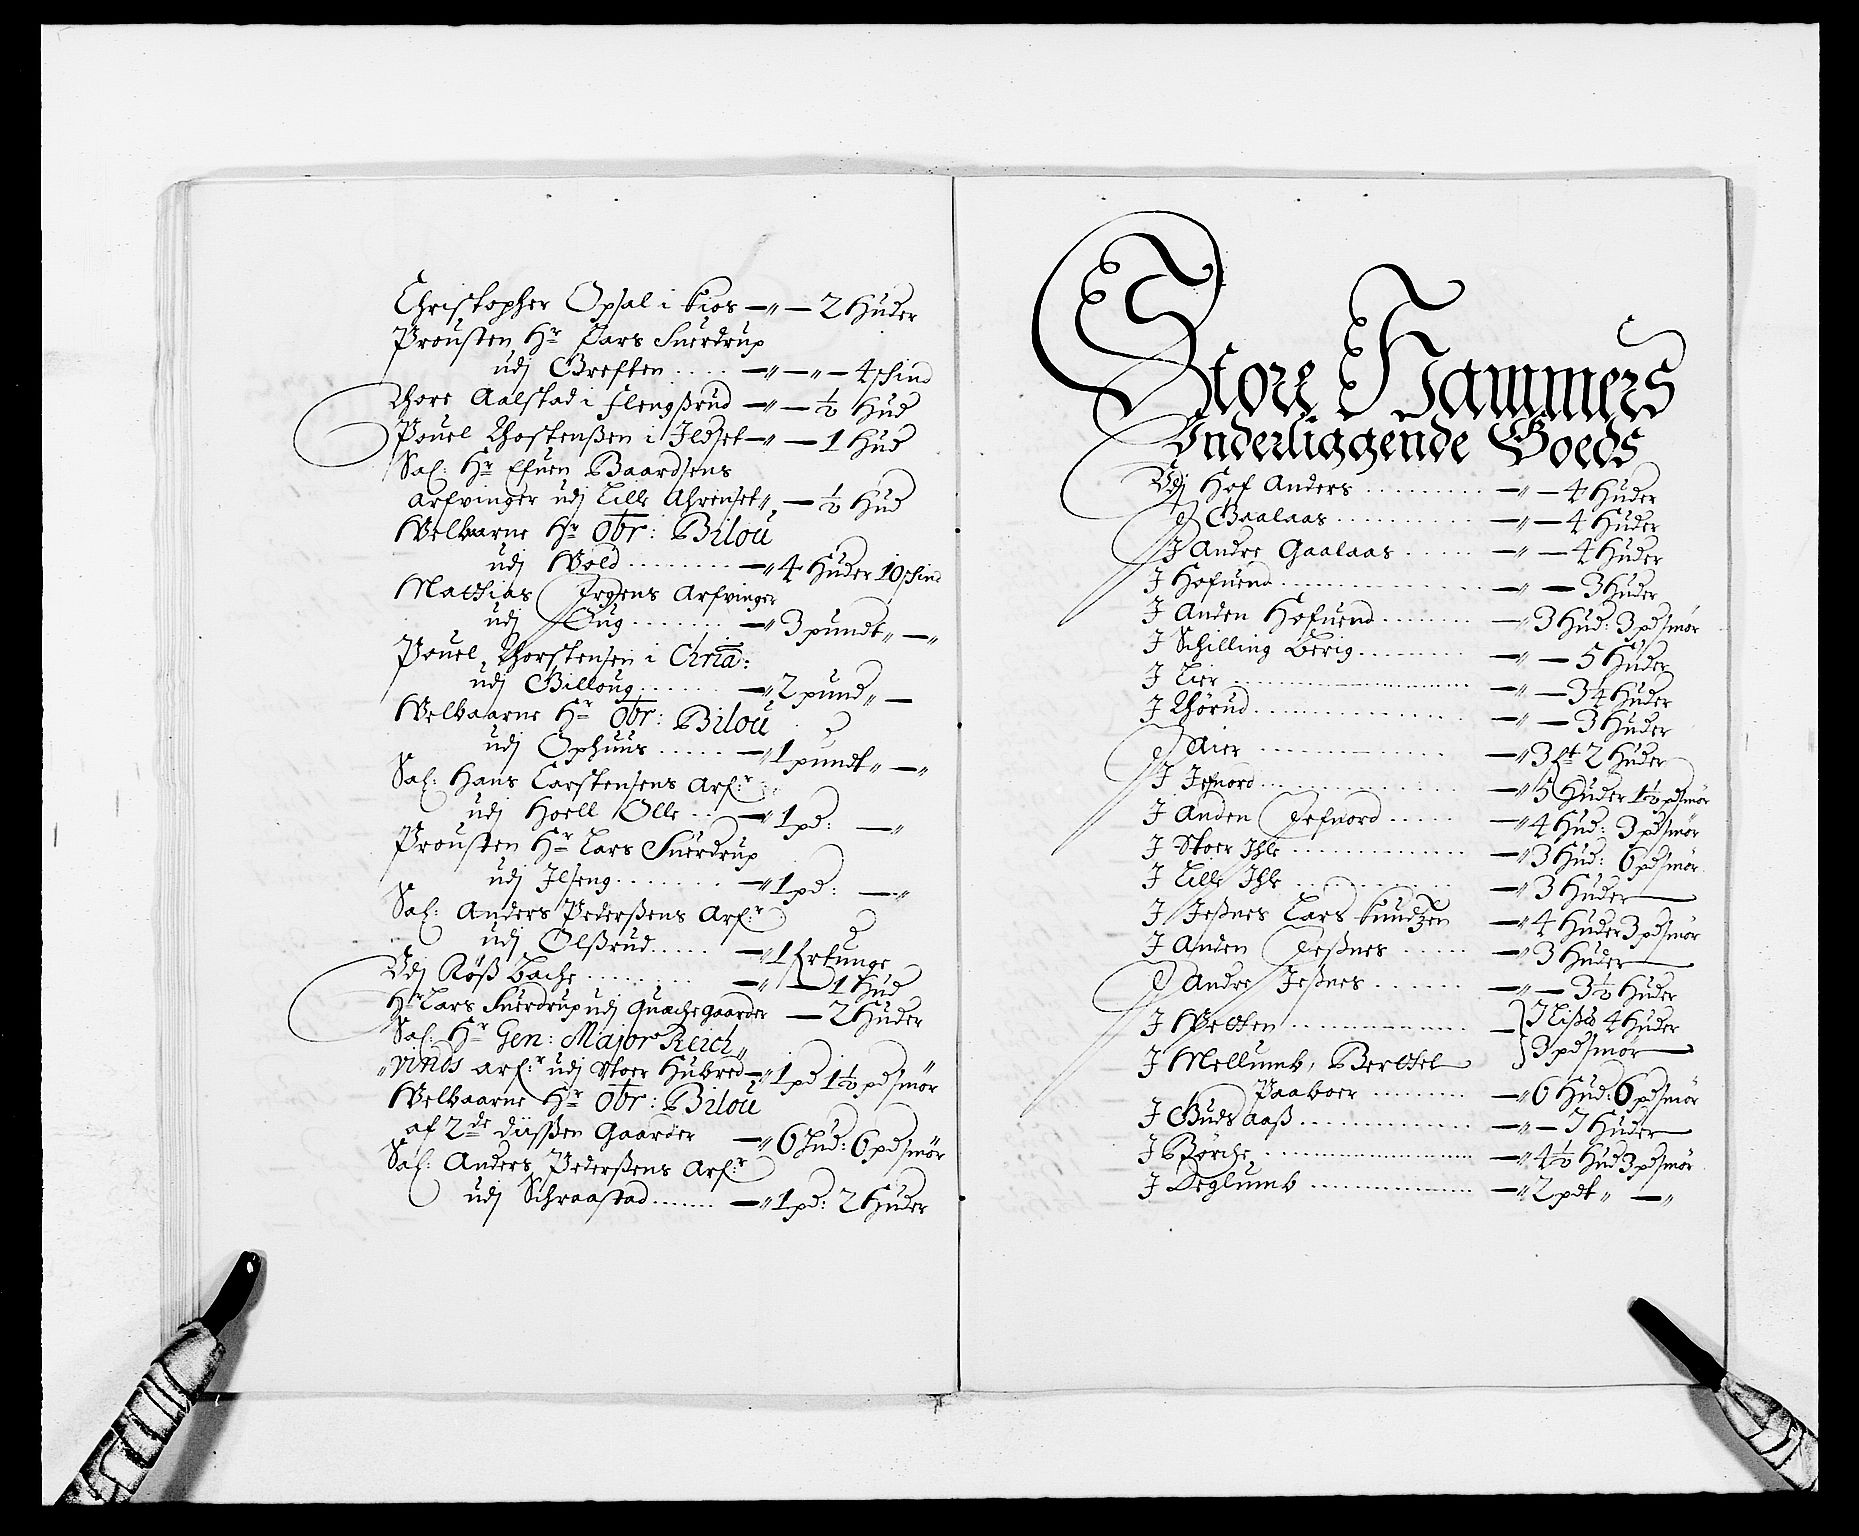 Christopher Opsal i Kios — „ — 2 Huder
Prousten Hr Lars Suerdrup
udj Greften .... — „ — „ — 4 schind
Thore Aalstad i flengßrud — „ — ½ Hud
Pouel Thostenßen i Ildset — „ — 1 Hud
Sal: Hr Efuen Baardsens
arfvinger udj Lille Ahrenset „ — ½ Hud
Welbaarne Hr Obr: Bilou
udj Wold ......... — „ 4 Huder 10 schind
Matthias Jrgens Arfvinger
udj Oug ........ — „ 3 pundt „ — „
Pouel Thorstensen i Chria:
udj Billoug ....... — „ 2 pund „ —
Welbaarne Hr Obr: Bilou
udj Ophuus ...... — „ 1 pundt „ — „
Sal: Hans Carstensens Arf:r
udj Hoell Olle .. — „ 1 pd: — „
Prousten Hr Lars Suerdrup
udj Ilseng ........ — „ 1 pd: — „
Sal: Anders Pederßens Arf:r
udj Olßrud ...... — „ 1 Ertunge
Udj Röß bache ........ — „ — 1 Hud
Hr Lars Suerdrup udj Quache gaarder — 2 Huder
Sal: Hr Gen: Major Reich„
„vinds arf:r udj Stoer Hubred — „ 1 pd 1½ pd smör
Welbaarne Hr Obr: Bilou
af 2de dißen Gaarder — „ 6 Hud: 6 pd smör
Sal: Anders Pederßens Arf:r
udj Schraastad ....... — „ 1 pd: 2 Huder
Store Hammers
Underliggende Goeds
Udj Hof Anders .......... — „ — 4 Huder
J Gaalaas ............ — „ — 4 Huder
J Andre Gaalaas ...... — „ — 4 Huder
J Hofuend ............... — „ — 3 Huder
J Anden Hofuend ........ — „ 3 Hud: 3 pd smör
J Schilling berig ......... — „ — 5 Huder
J Lier ................ — „ — 3¼ Huder
J Thörud ............... — „ — 3 Huder
J Aier ............... — „ 3 qt 2 Huder
J Jefnord ............... — „ 5 Huder 1½ pd smör
J Anden Jefnord ...... — „ 4 Hud: 3 pd smör
J Stoer Ihle ............. — „ 3 Hud: 6 pd smör
J Lille Ihle ............. — „ 3 Huder —
J Jeßnes Lars Knudzen — „ 4 Huder 3 pd smör
J Anden Jeßnes ...... — „ 3 Huder —
J Andre Jeßnes ....... — „ — 3½ Huder
J Wetten ............... — 4 Huder
3 pd smör —
J Mellumb, Berthel
Paaboer ......... — „ 6 Hud: 6 pd smör
J Gudsaaß .............. — „ — 7 Huder —
J Börche ................. — „ 4½ Hud 3 pd smör
J Deglumb ............... — „ 2 pdt „ — „